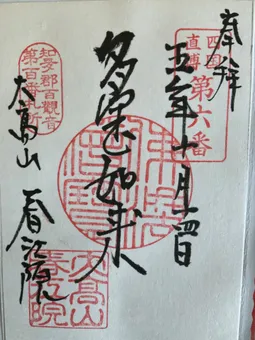 奉拝
四国
直傳
第六番
五年十月十四日
多宝如来
知多郡百観音
第百番札所
大高山
春江院
大高山
春江院